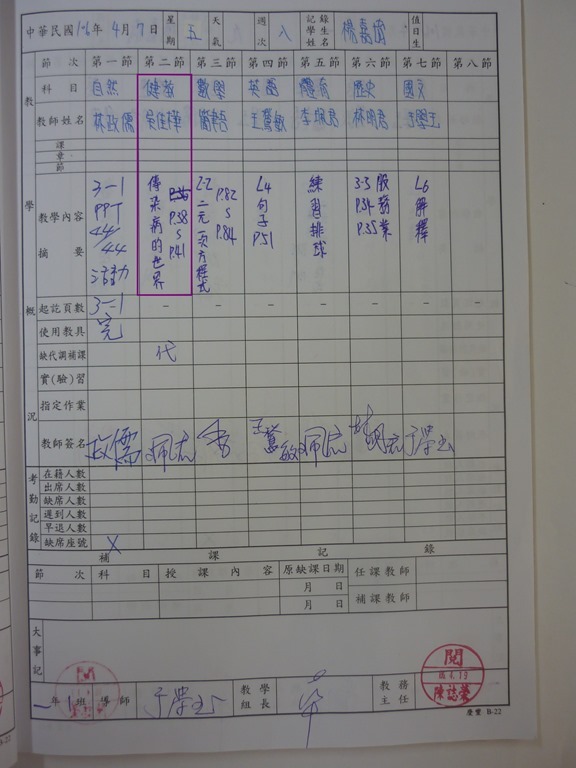 中華民國106年4月7日 星期五 天氣 週次八 記錄學生姓名 楊嘉 值日生
節次 第一節 第二節 第三節 第四節 第五節 第六節 第七節 第八節
教學概況
科目 自然 健教 數學 英語 體育 歷史 國文
教師姓名 林政儒 吳佳樺 王鶯敏 李珮君 林明君 于學玉
課
章
節
教學內容摘要
3-1 PPT 4/4 活動
傳染病的世界 P.38 P.41
2-2 二元一次方程式 P.82 P.84
L4 句子 P.51
練習排球
3-3 服務業 P.34 P.35
L6 解釋
起訖頁數 3-1 – – – – – – –
使用教具 完
缺代調補課 代
實(驗)習
指定作業
教師簽名 政儒 王鶯敏 于學玉
考勤記錄
在籍人數
出席人數
缺席人數
遲到人數
早退人數
缺席座號 X
補課記錄
節次 科目 授課內容 原缺課日期 任課教師
月 日
月 日 補課教師
大事記
閱
106.4.13
一年1班導師 于學玉 教學組長 教務主任
慶豐 B-22